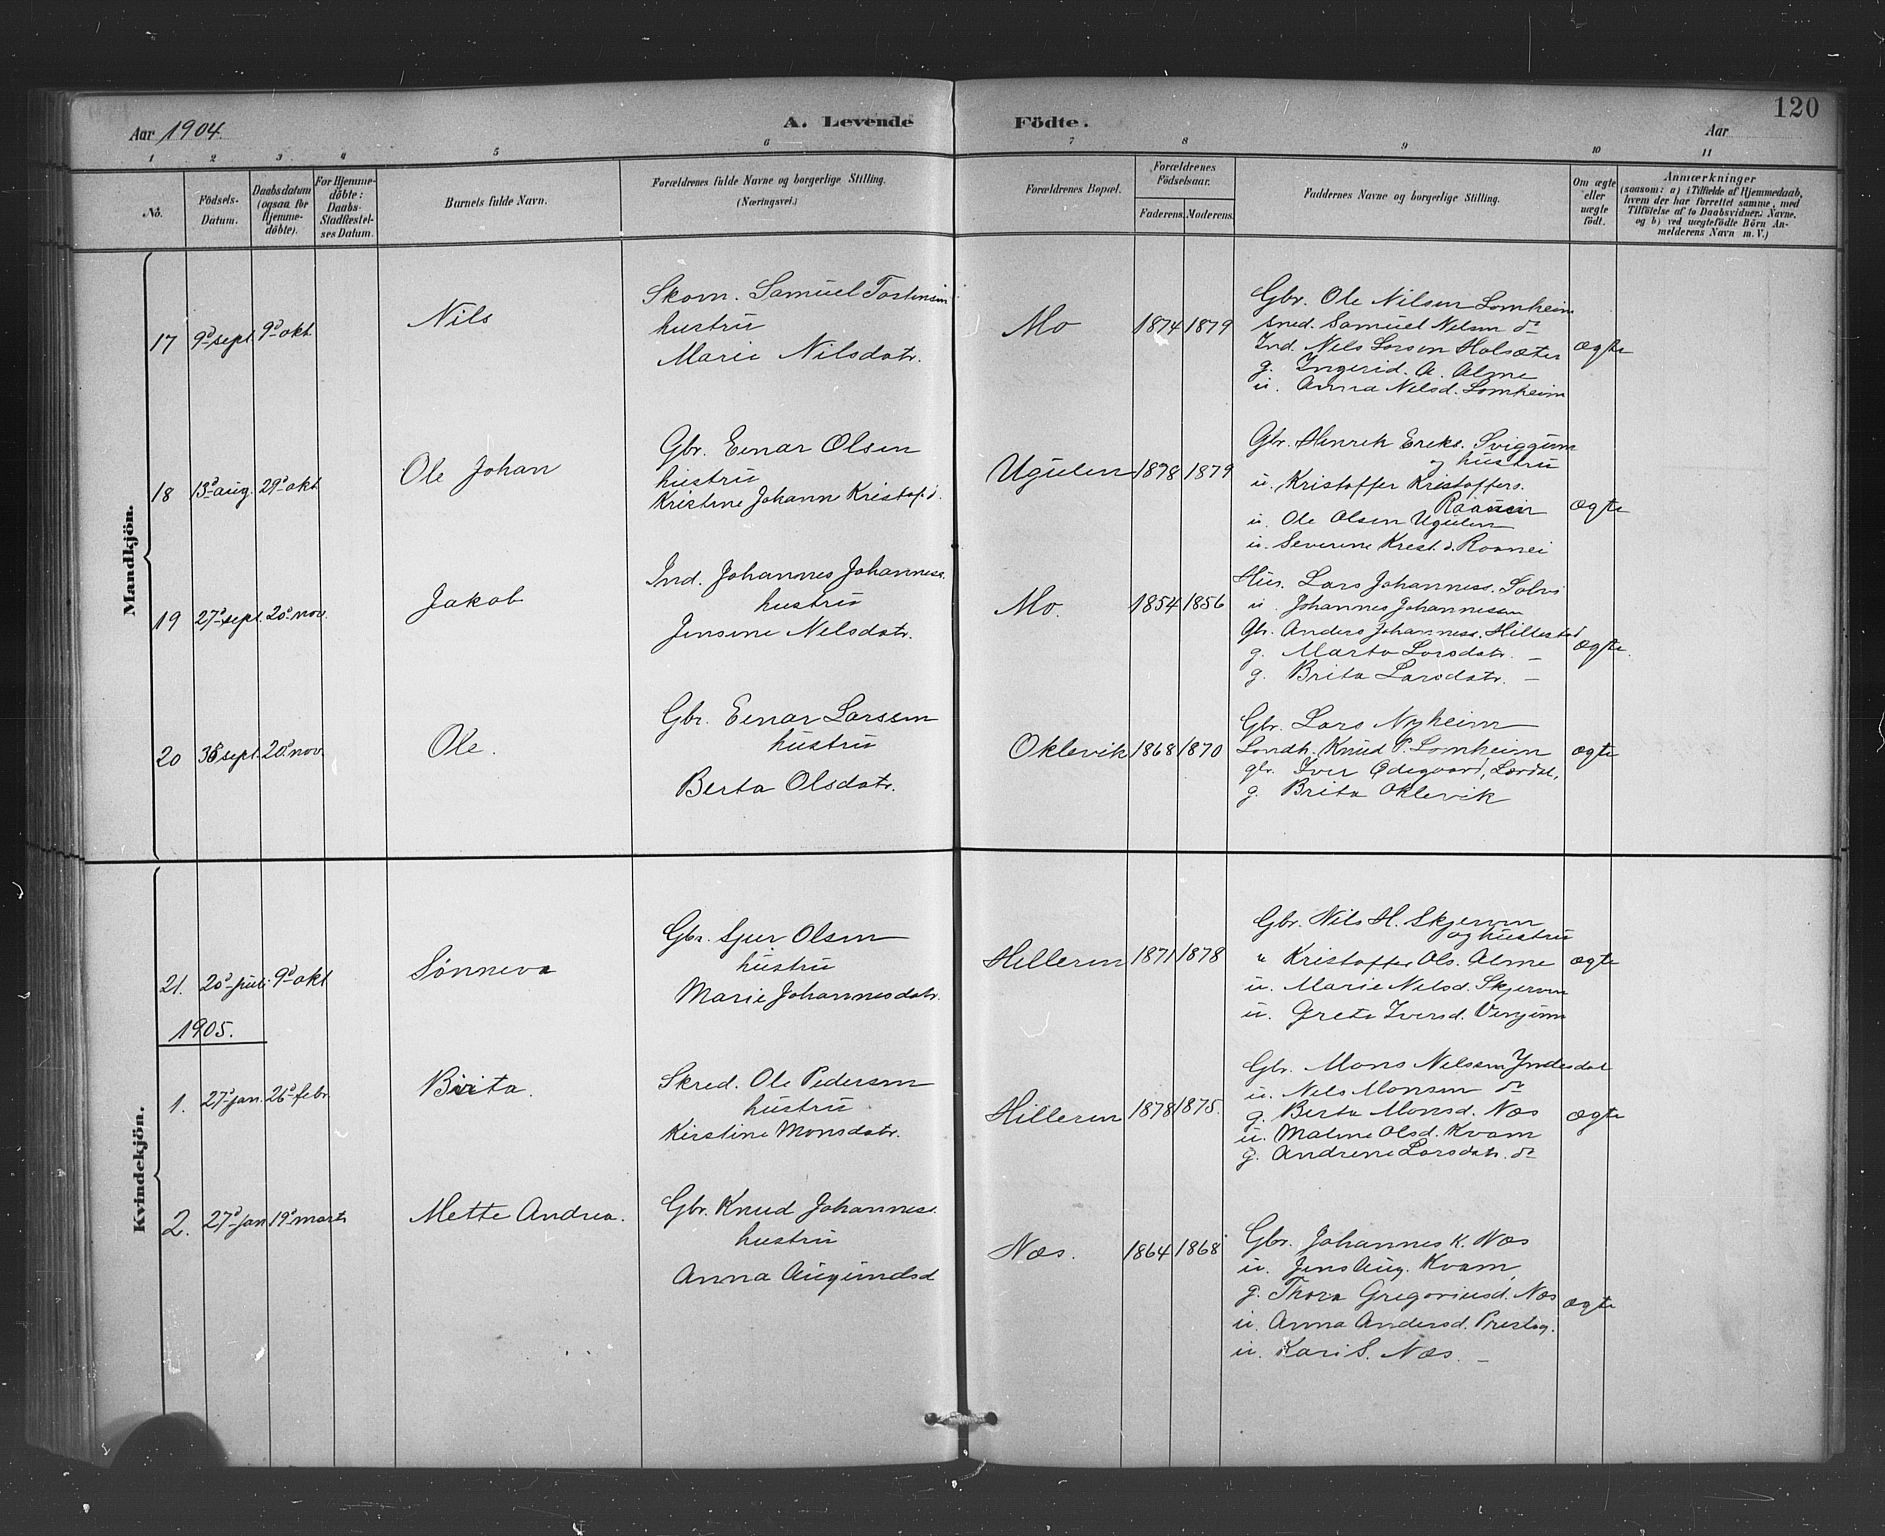 Aar 1904.
A. Levende Födte.
Aar
120
1 2 3 4 5 6 7 8 9 10 11
No.
Födsels-Datum.
Daabsdatum (ogsaa for Hjemme-döbte).
For Hjemme-döbte: Daabs-Stadfæstel-ses Datum.
Barnets fulde Navn.
Forældrenes fulde Navne og borgerlige Stilling.
(Næringsvei.)
Forældrenes Bopæl.
Forældrenes Födselsaar.
Faderens.
Moderens.
Faddernes Navne og borgerlige Stilling.
Om ægte eller uægte födt.
Anmærkninger
(saasom: a) i Tilfælde af Hjemmedaab,
hvem der har forrettet samme, med
Tilföielse af to Daabsvidners Navne.
og b) ved uægtefödte Börn An-
melderens Navn m. V.)
Mandkjön.
17 9d sept. 9d okt. Nils
Skom. Samuel Tostensen
hustru
Marie Nilsdatr.
Mo 1874 1879
Gbr. Ole Nilsen Lomheim
Sned. Samuel Nilsen do
Ind. Nils Larsen Holsæter
g. Ingerid. A. Alme
u. Anna Nilsd. Lomheim
ægte
18 13d aug. 29d okt Ole Johan
Gbr. Einar Olsen
hustru
Kristine Johann Kristof.d.
Ugulen 1878 1879
Gbr. Henrik Eriks. Sviggum
og hustru
u. Kristoffer Kristoffers.
u. Ole Olsen Ugulen
u. Severine Krist.d. Roanei
ægte
19 27d sept. 20d nov. Jakob
Ind. Johannes Johanness.
hustru
Jensine Nilsdatr.
Mo. 1854 1856
Hus. Lars Johanness.
u. Johannes Johannessen
Gbr. Anders Johanness. Hillestad
g. Marta Larsdatr. —
g. Brita Larsdatr. —
ægte.
20 sept. 20d nov. Ole.
Gbr. Einar Larssen
hustru
Berta Olsdatr.
Oklevik 1868 1870
Gbr. Lars Nyheim
Landh. Knud P. Lomheim
gbr. Iver Ødegaard, Lærdal,
g. Brita Oklevik
ægte
Kvindekjön.
21. 20d juli. 9d okt Sønneva
Gbr. Sjur Olsen
hustru
Marie Johannesdatr.
Hilleren 1871 1878
Gbr. Nils H. Skjerven
og hustru
" Kristoffer Ols. Alme
u. Marie Nilsd. Skjerven
u. Grete Iversd.
ægte
1905.
1. 27d jan. 26d febr. Brita.
Skred. Ole Pedersen
hustru
Kirstine Monsdatr.
Hilleren 1878 1875.
Gbr. Mons Nilssen Yndesdal
u. Nils Monsen do
g. Berta Monsd. Næs
u. Malene Olsd. Kvam
g. Andrine Larsdatr. do
ægte
2. 27d jan 19d marts Mette Andrea.
Gbr. Knud Johannes.
hustru
Anna Augundsd
Næs. 1864 1868
Gbr. Johannes K. Næs
u. Jens Aug. Kvam
g. Thora Gregoriusd. Næs
u. Anna Andersd. Presteg.
u. Kari S. Næs. —
ægte